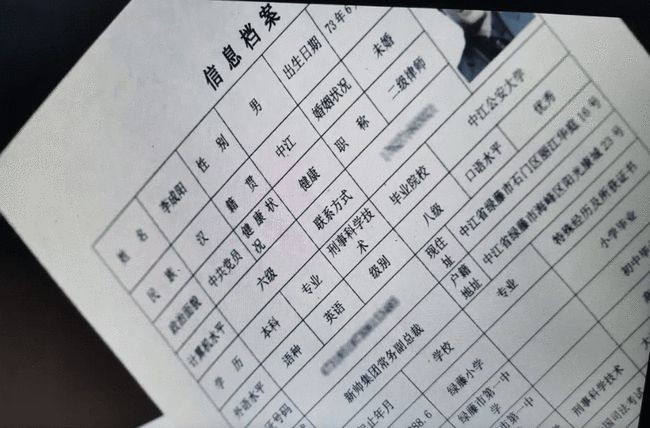 信息档案
姓名 李成阳 性别 男 出生日期 73年6
民族 汉 籍贯 中江 婚姻状况 未婚
政治面貌 中共党员 健康状况 健康 职称 二级律师
计算机水平 六级 联系方式
学历 本科 专业 刑事科学技术 毕业院校 中江公安大学
外语水平 语种 英语 级别 八级 口语水平 优秀
证号码 现住址 中江省绿藤市石门区丽江华庭16号
新帅集团常务副总裁 户籍地址 中江省绿藤市海峰区阳光康城23号
止年月 学校 专业 特殊经历及所获证书
988.6 绿藤小学 小学毕业
绿藤市第一中学 初中毕业
绿藤市第一中
刑事科学技术 大
国司法考试